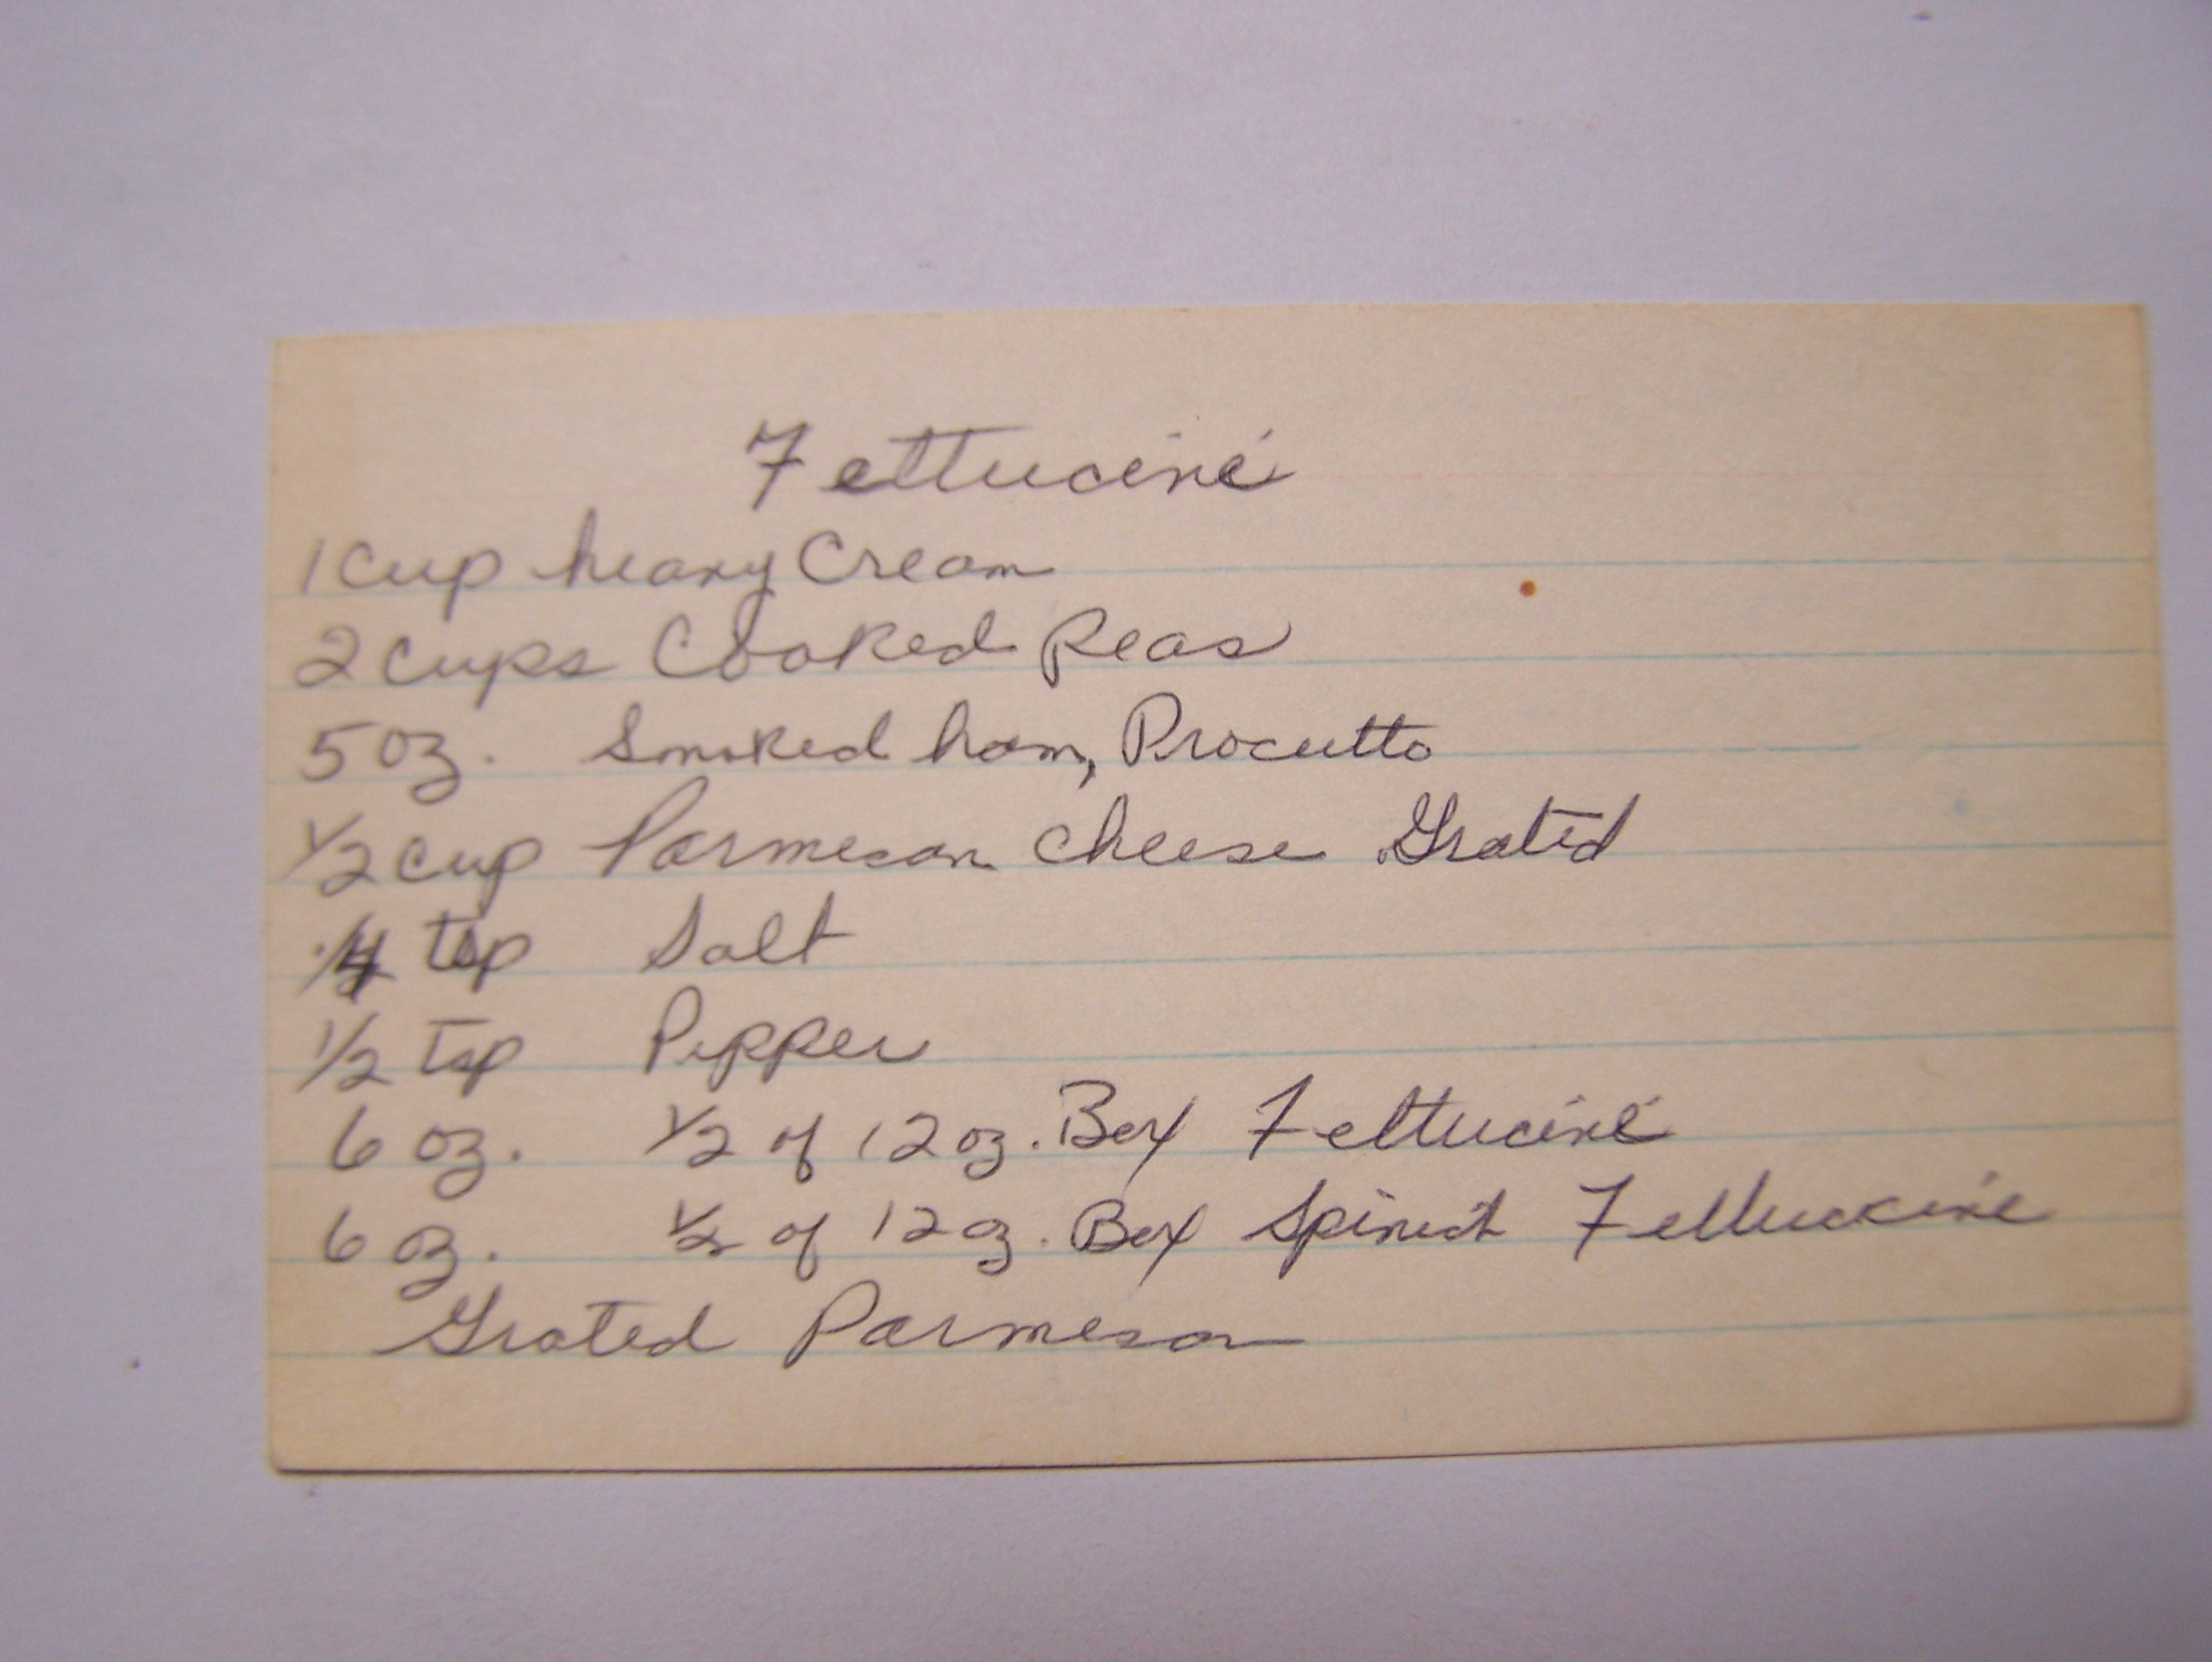 Fettucini
1 cup heavy Cream
2 cups Cooked Peas
5 oz. Smoked ham, Procutto
1/2 cup Parmesan cheese Grated
1/4 tsp Salt
1/2 tsp Pepper
6 oz. 1/2 of 12 oz. Box Fettucini
6 oz. 1/2 of 12 oz. Box Spinach Fettuccine
Grated Parmesan